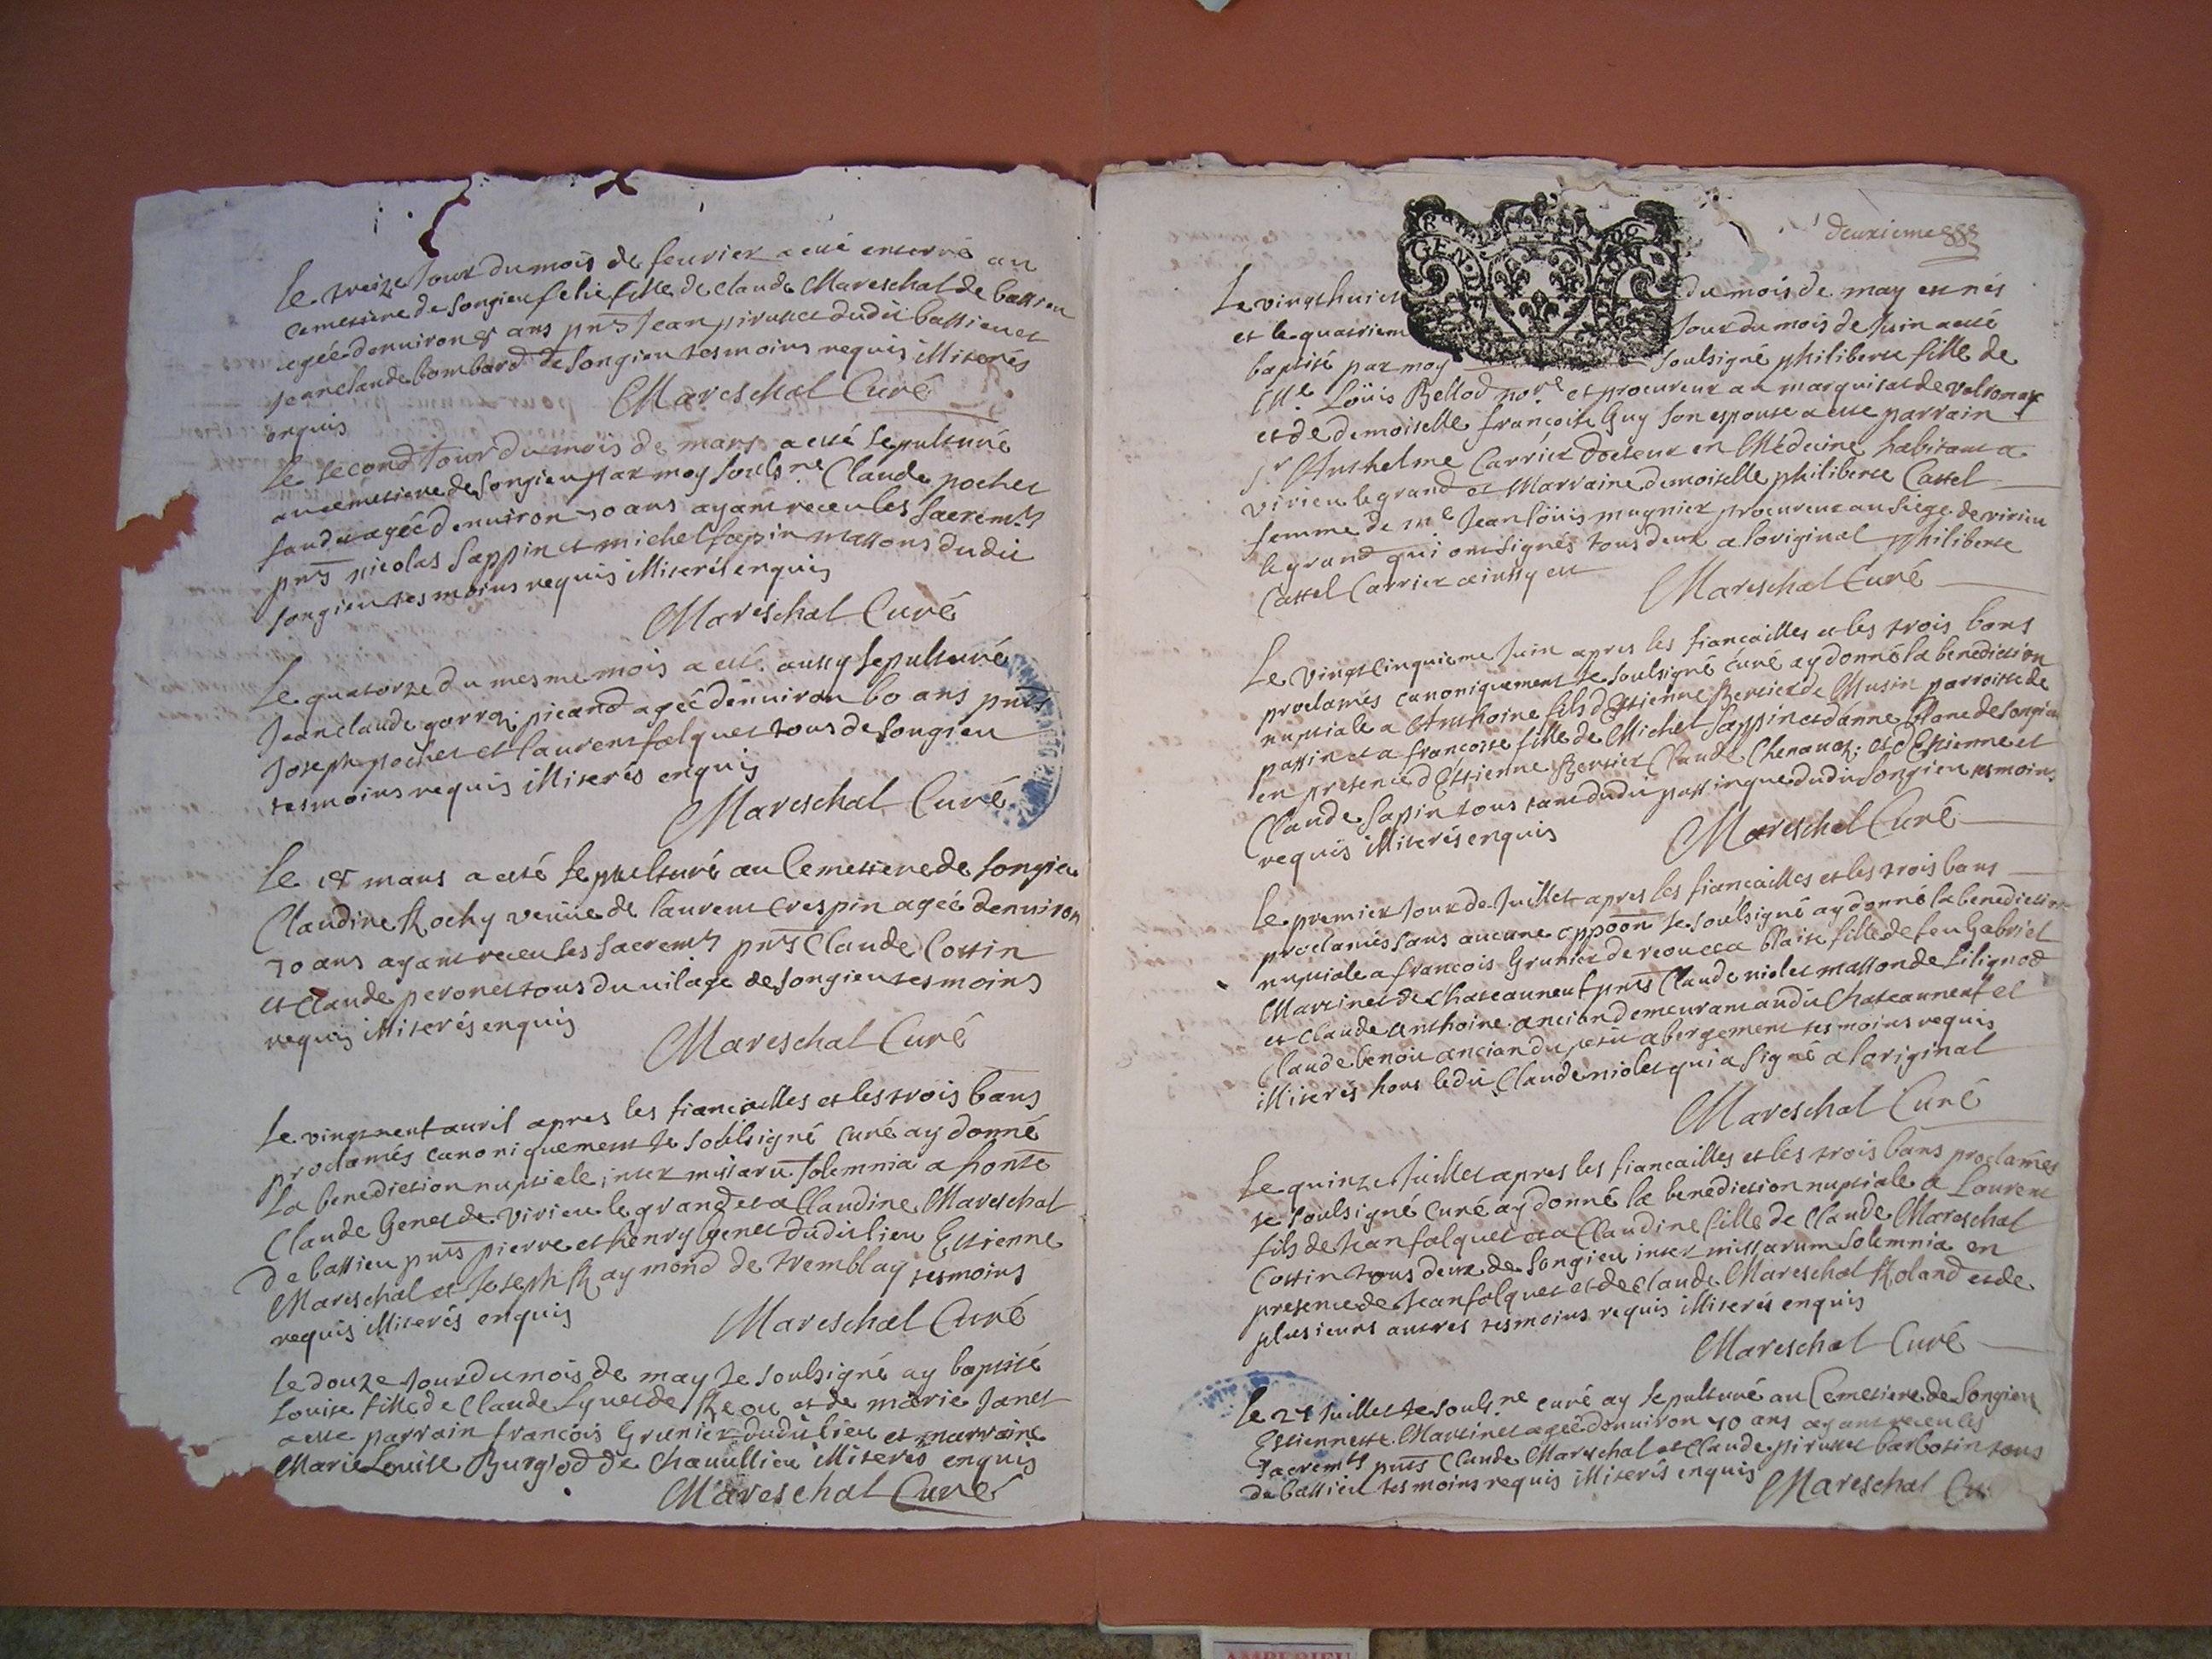 Le treize Jour du mois de feurier a esté enterré au
Cemetiere de Songieu felie fille de Claude Mareschal de bassieu
agée denuiron 8 ans pnts Jean pirusset dudit bassieu et
Jean claude bombard de Songieu tesmoins requis illiterés
enquis
Mareschal Curé
Le second Jour du mois de mars a esté sepulturé
au cemetiere de Songieu par moy souls.ne Claude pochet
faudit agée denuiron 70 ans ayant receu les sacrem.ts
pnts nicolas Sappin et michel sapin massons dudit
songieu tesmoins requis illiterés enquis
Mareschal Curé
Le quatorze du mesme mois a esté aussy sepulturé
Jean claude picand agée denuiron 60 ans pnts
Joseph pochet et laurent falquet tous de Songieu
tesmoins requis illiterés enquis
Mareschal Curé
Le 18 mars a esté sepulturé au Cemetiere de Songieu
Claudine Rochy veuue de laurent Crespin agée denuiron
70 ans ayant receu les sacrem.ts pnts Claude Cottin
et Claude peronet tous du uilage de songieu tesmoins
requis illiterés enquis
Mareschal Curé
Le vingtneuf auril apres les fiancailles et les trois bans
proclamés canoniquement Je soulsigné Curé ay donné
La benediction nuptiale inter missarū solemnia a honte
Claude Genet de virieu le grand et a Claudine Mareschal
de bassieu pnts pierre et henry genet dudit lieu Estienne
Mareschal et Joseph Raymond de tremblay tesmoins
requis illiterés enquis
Mareschal Curé
Le douze Jour du mois de may Je soulsigné ay baptisé
Louise fille de Claude Lynet de Reou et de marie Janet
a esté parrain francois Grunier dudit lieu et marraine
Marie Louise Burg'od de Chauillieu illiterés enquis
Mareschal Curé
deuxieme
Le vingthuict du mois de may est nés
et le quatriem Jour du mois de Juin a esté
baptisé par moy soulsigné philiberte fille de
M.e Loüis Bellod no.re et procureur au marquisat de valromey
et de demoiselle francoise Guy son espouse a esté parrain
S.r Anthelme Carrier docteur en Médecine habitant a
virieu le grand et Marraine demoiselle philiberte Cattel
femme de m.e Jean loüis mugnier procureur au siege de virieu
le grand qui ont signés tous deux a loriginal philiberte
Cattel Carrier ainssy est
Mareschal Curé
Le vingtcinquieme Juin apres les fiancailles et les trois bans
proclamés canoniquement Je soulsigné Curé ay donné la benediction
nuptiale a Anthoine fils d'Estienne Bertier de Musin parroisse de
passin et a francoise fille de Michel Sappin et d'anne blanc de songieu
en presence d'Estienne Bertier Claude Chenauaz et d'Estienne et
Claude Sapin tous tant dudit passin que dudit Songieu tesmoins
requis illiterés enquis
Mareschal Curé
Le premier Jour de Juillet apres les fiancailles et les trois bans
proclamés sans aucune oppoōn Je soulsigné ay donné la benediction
nuptiale a francois Grunier de reou et a blaise fille de feu Gabriel
Martinet de Chateauneuf pnts Claude niolet masson de Lilignod
et Claude Anthoine ancian demeurant audit Chateauneuf et
Claude benoit ancian du petit abergement tesmoins requis
illiterés hors ledit Claude niolet qui a signé a loriginal
Mareschal Curé
Le quinze Juillet apres les fiancailles et les trois bans proclamés
Je soulsigné Curé ay donné la benediction nuptiale a Laurent
fils de Jean falquet et a Claudine fille de Claude Mareschal
Cottin tous deux de Songieu inter missarum solemnia en
presence de Jean falquet et de Claude Mareschal Roland et de
plusieurs autres tesmoins requis illiterés enquis
Mareschal Curé
Le 27 Juillet Je souls.ne curé ay sepulturé au Cemetiere de Songieu
Estiennette Martinet agée denuiron 70 ans ayant receu les
sacrem.ts pnts Claude Mareschal et Claude pirusset barbotin tous
de bassieu tesmoins requis illiterés enquis
Mareschal Cu